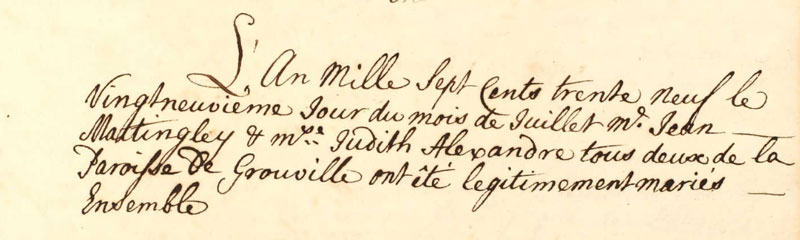 L'An Mille Sept Cents trente neuf le
Vingtneuvième Jour du mois de Juillet Mr. Jean
Mattingley & mlle Judith Alexandre tous deux de la
Paroisse de Grouville ont été legitimement mariés
Ensemble